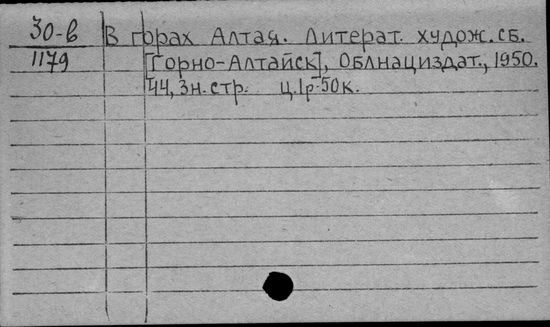 30-в В горах Алтая. Литерат. худож. сб.
1179 [Горно-Алтайск], Облнациздат., 1950.
44, 3н. стр. ц. 1р-50к.